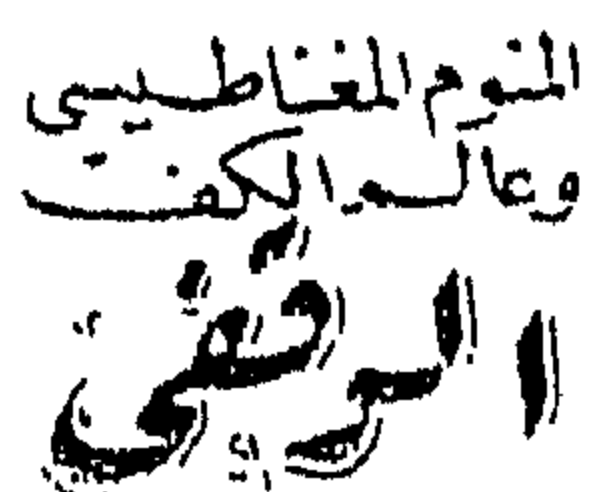 المنوم المغناطيسي
وعالم الكف